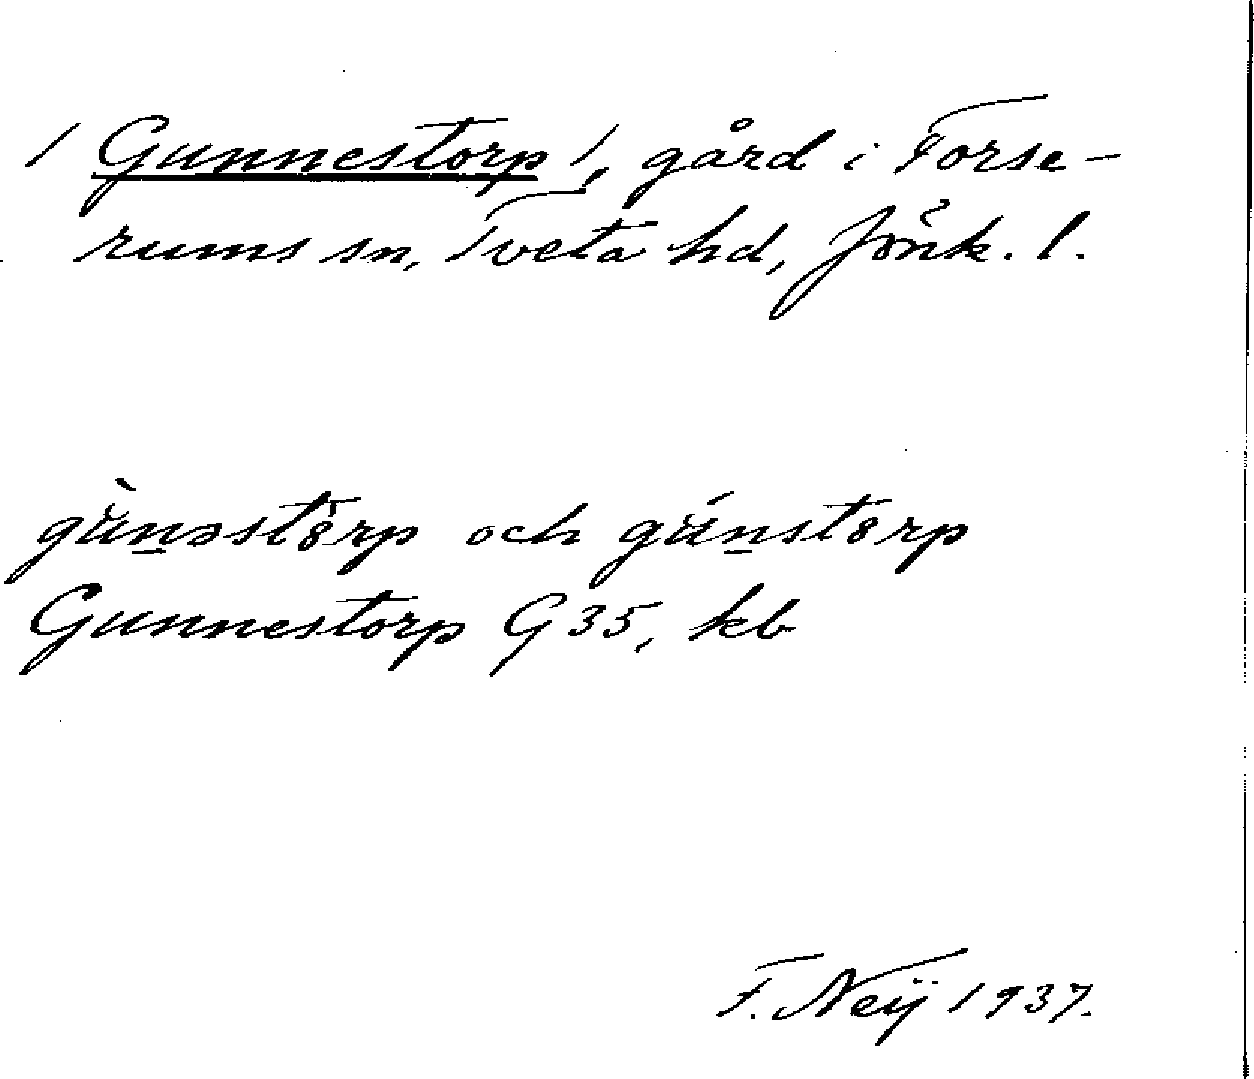 / Gunnestorp /, gård i Forse-
rums sn, Tveta hd, Jönk. l.
gu̇̀n̲əstȯ̀rp och gú̇n̲störp
Gunnestorp G 35, kb
F. Neij 1937.